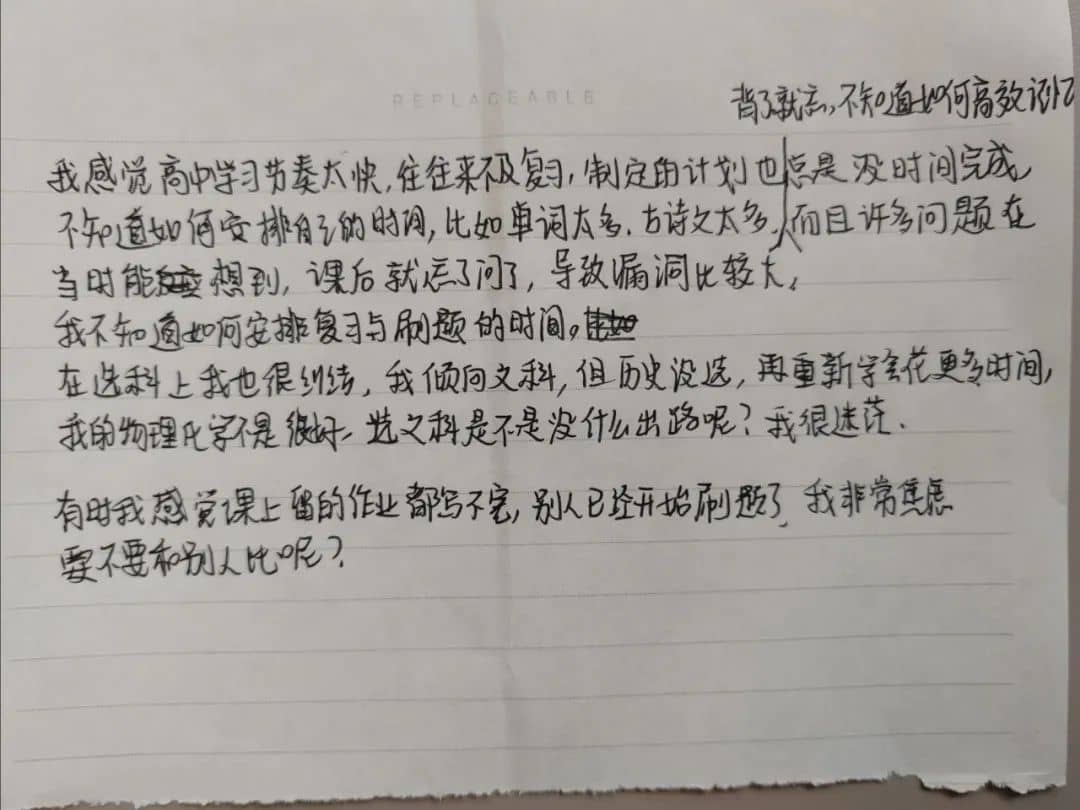 REPLACEABLE
背了就忘,不知道如何高效记忆
我感觉高中学习节奏太快,往往来不及复习,制定的计划也总是没时间完成,
不知道如何安排自己的时间,比如单词太多、古诗文太多,而且许多问题在
当时能想到,课后就忘了问了,导致漏洞比较大,
我不知道如何安排复习与刷题的时间。
在选科上我也很纠结,我倾向文科,但历史没选,再重新学会花更多时间,
我的物理化学不是很好、选文科是不是没什么出路呢?我很迷茫.
有时我感觉课上留的作业都写不完,别人已经开始刷题了,我非常焦虑
要不要和别人比呢?